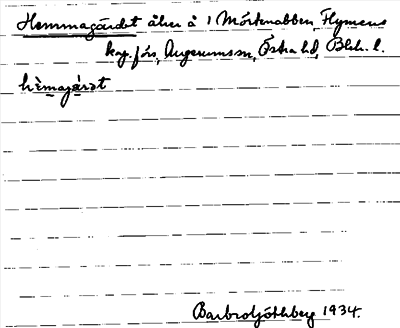 Hemmagärdet åker å 1 Mörtnabben, Flymens
kap. förs, Augerumssn, Östra hd, Blek. l.
hèmajárdt
Barbro Ljöthberg 1934.